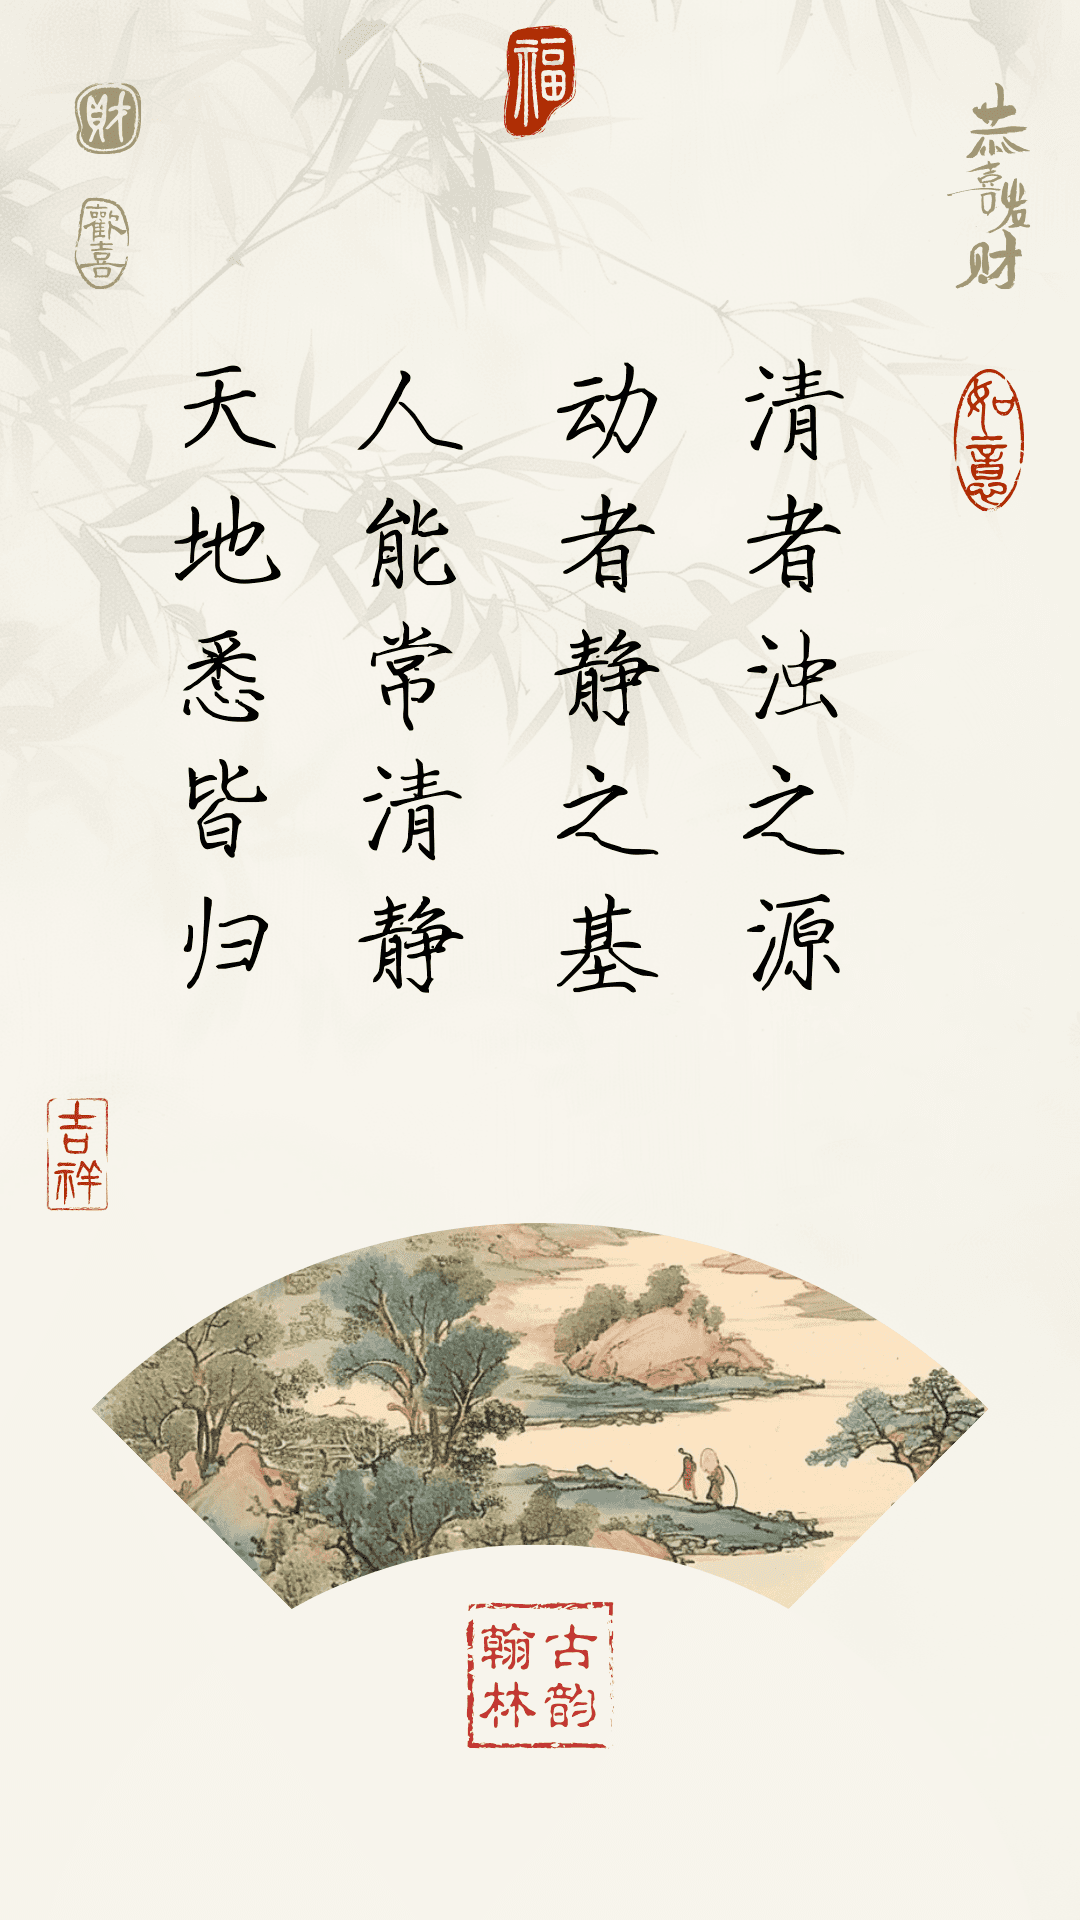 福
财
歡喜
恭喜发财
如意
清者浊之源
动者静之基
人能常清静
天地悉皆归
吉祥
古韵
翰林